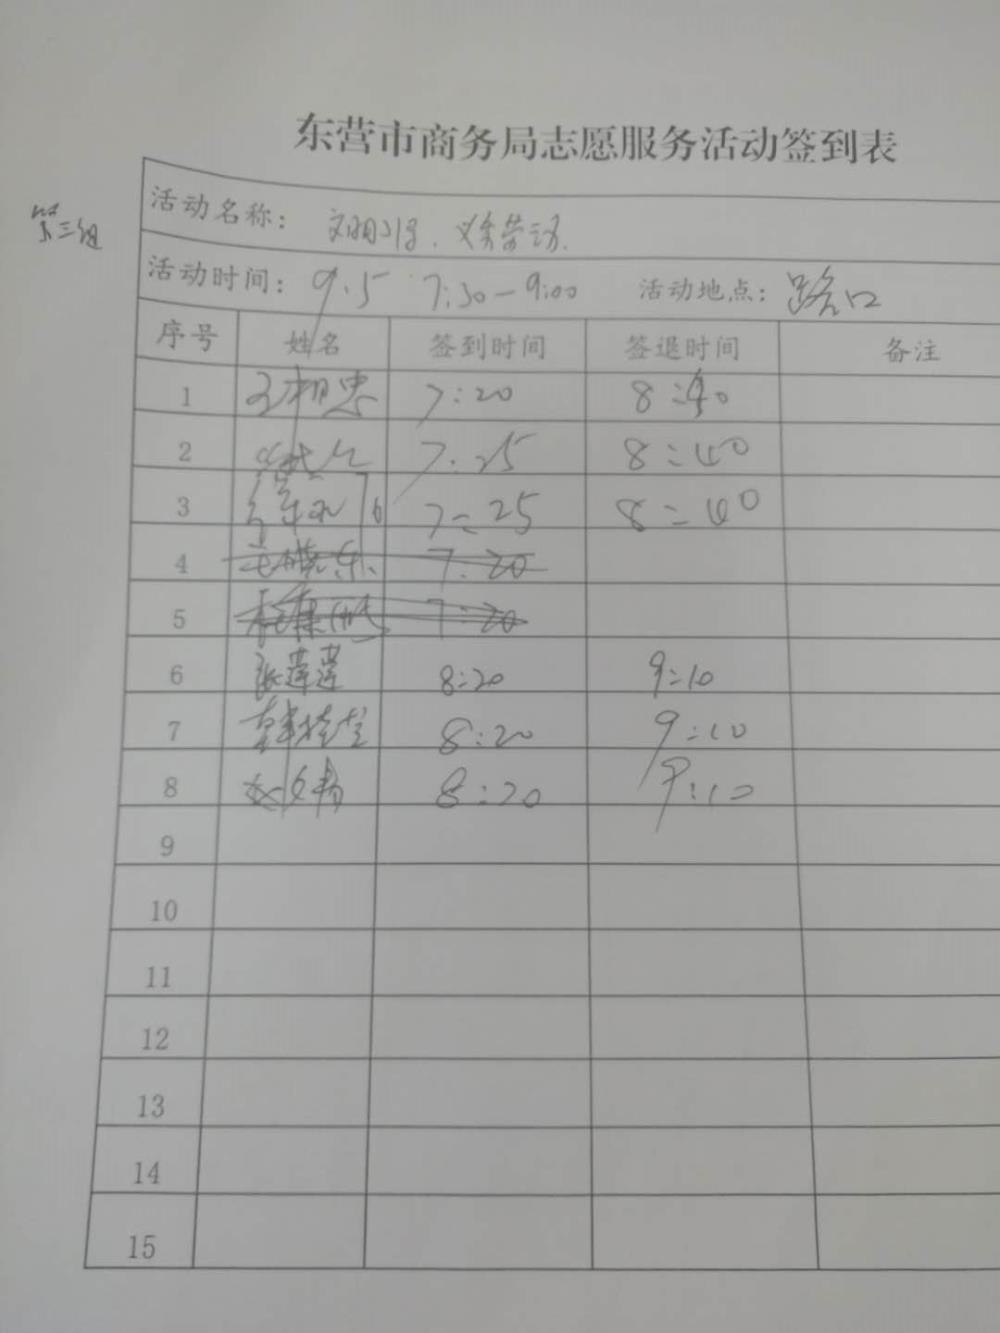 东营市商务局志愿服务活动签到表
第三组
活动名称： 文明 义务劳动.
活动时间： 9.5 7:30-9:00 活动地点： 路口
序号 姓名 签到时间 签退时间 备注
1 7:20 8:40
2 7:25 8:40
3 7:25 8:40
4 7:20
5 7:20
6 张莲莲 8:20 9:10
7 8:20 9:10
8 8:20 9:10
9
10
11
12
13
14
15